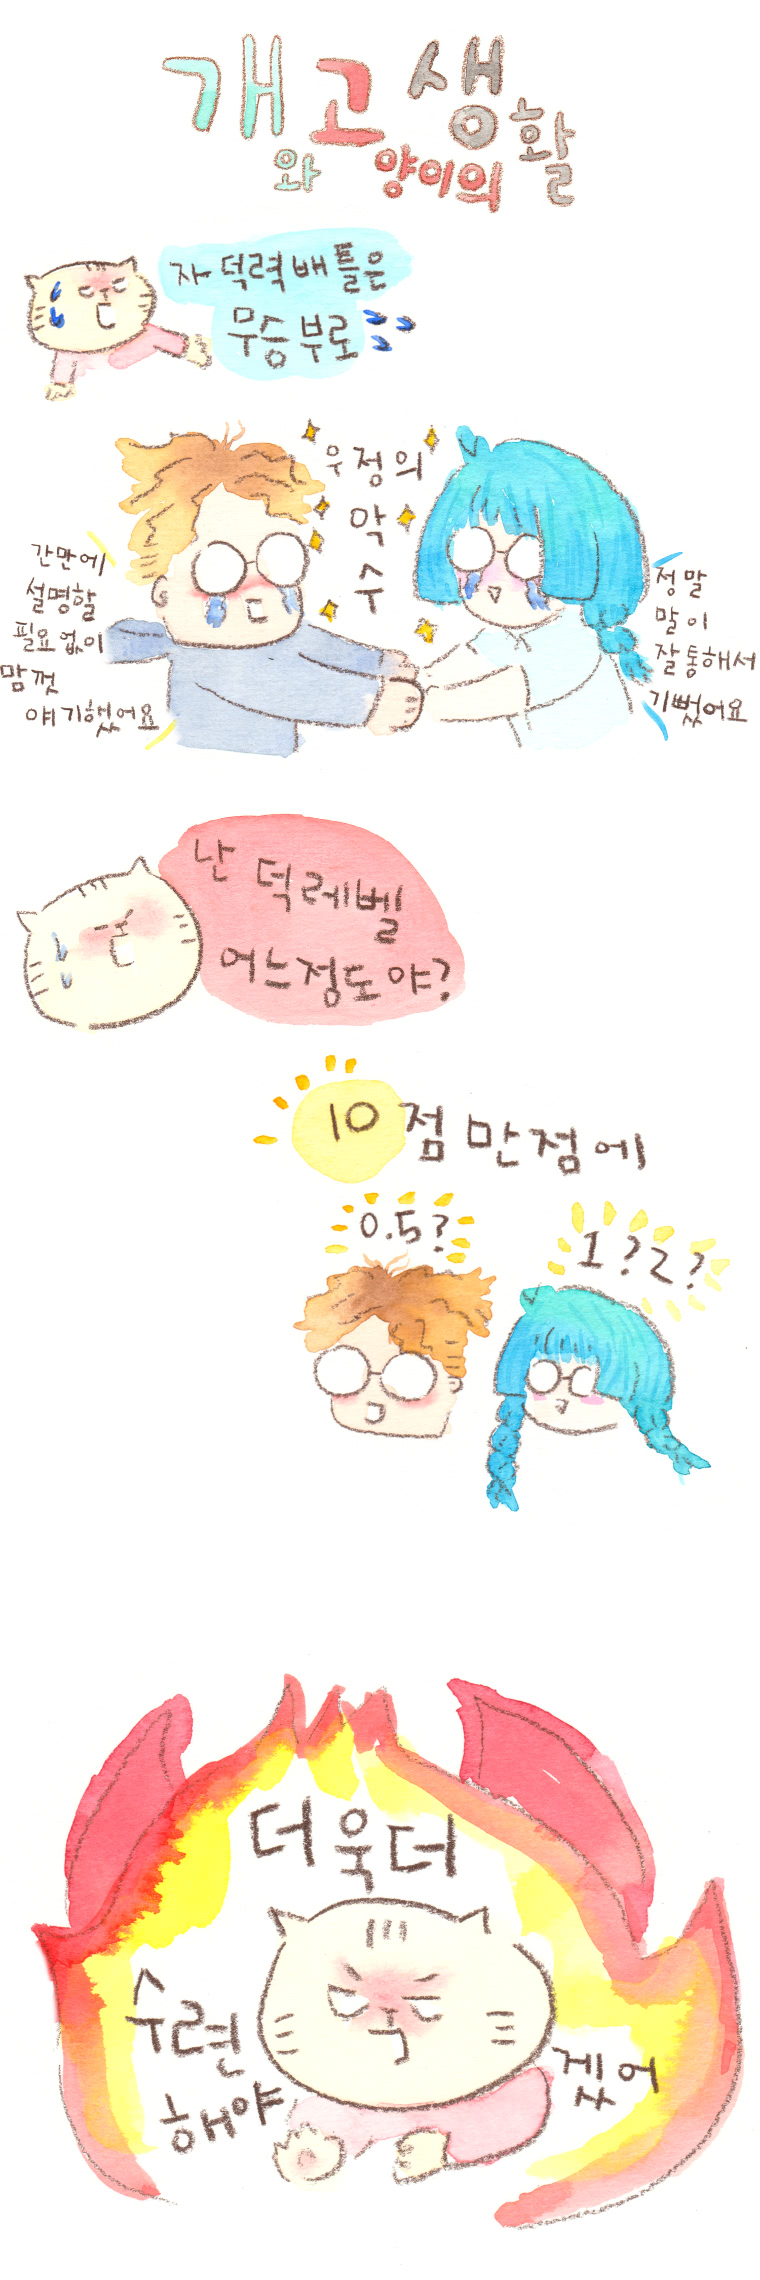 개고생
와 양이의 활
자 덕력 배틀은
무승부로
우정의
악
수
간만에
설명할
필요없이
맘껏
얘기했어요
정말
말이
잘통해서
기뻤어요
난 덕레벨
어느정도야?
10점 만점에
0.5?
1?2?
더욱더
수련
해야
겠어